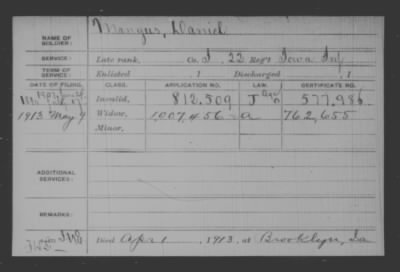 NAME OF SOLDIER: Mangus, Daniel
SERVICE: Late rank, Co. I, 22 Reg't Iowa Inf
TERM OF SERVICE: Enlisted , 1 Discharged , 1
DATE OF FILING. CLASS. APPLICATION NO. LAW. CERTIFICATE NO.
Invalid, 812,509 577,986
1913 May 9 Widow, 1,007,456 a 762,655
Minor,
ADDITIONAL SERVICES:
REMARKS:
Died Apr 1, 1913, at Brooklyn, Ia